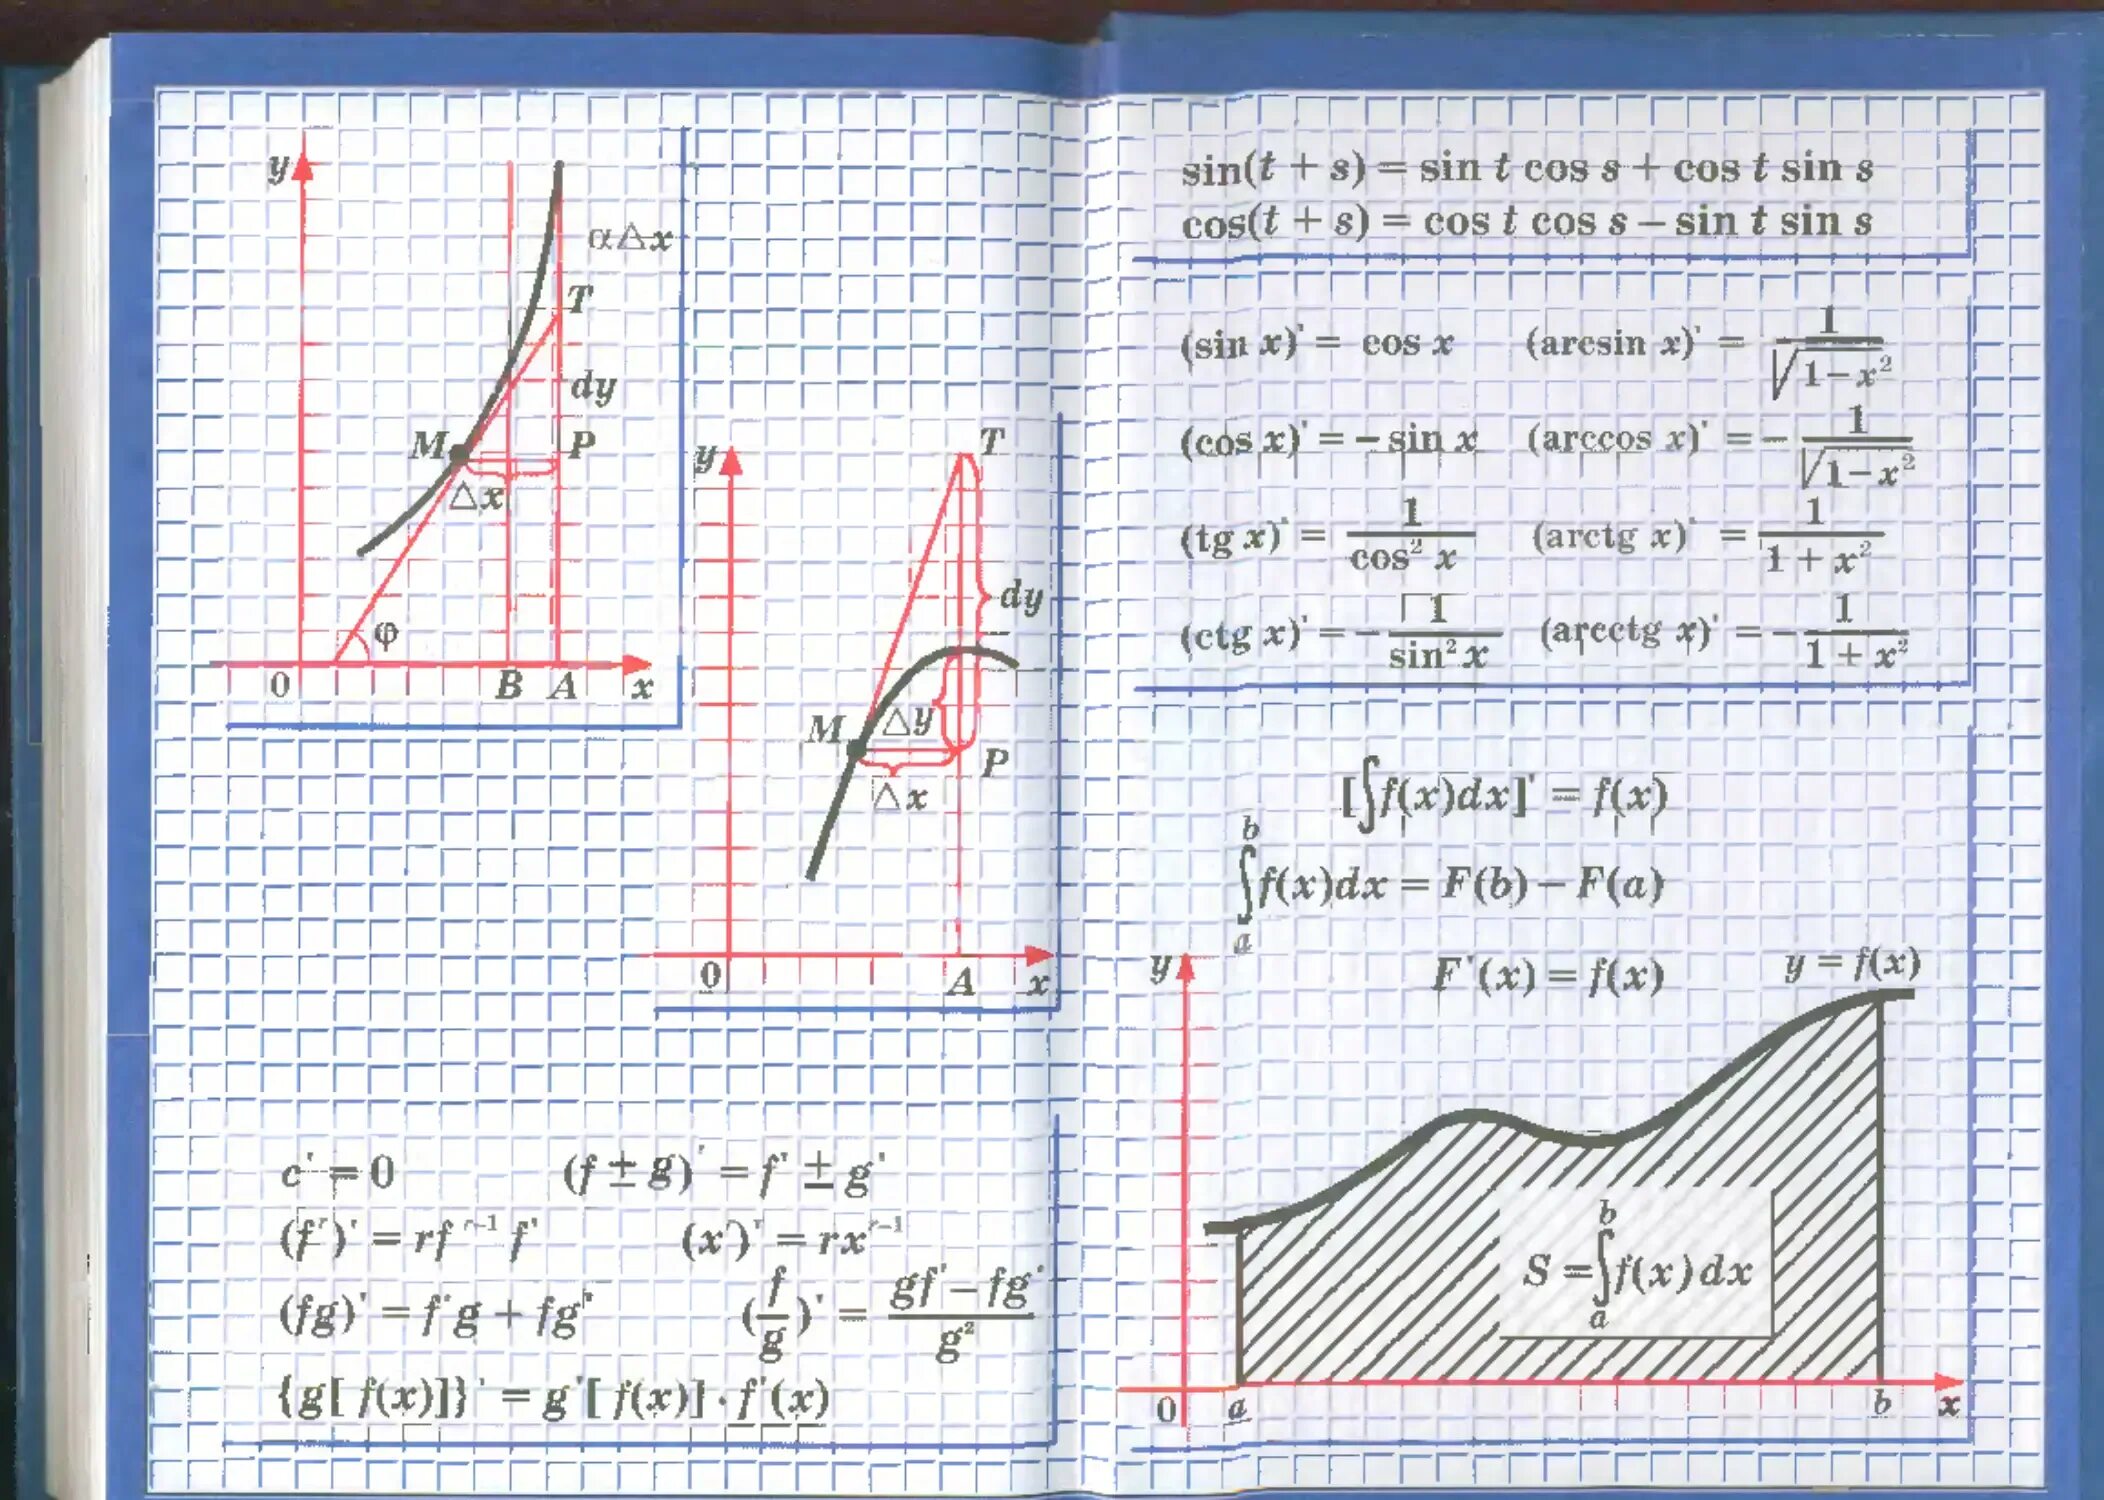 y
αΔx
T
dy
M P
Δx
φ
0 B A x
y T
dy
M Δy
P
Δx
0 A x
c' = 0 (f ± g)' = f' ± g'
(fʳ)' = rfʳ⁻¹ f' (xʳ)' = rxʳ⁻¹
(fg)' = f'g + fg' (f/g)' = (gf' – fg')/g²
{g[f(x)]}' = g'[f(x)] · f'(x)
sin(t + s) = sin t cos s + cos t sin s
cos(t + s) = cos t cos s – sin t sin s
(sin x)' = cos x (arcsin x)' = 1/√(1–x²)
(cos x)' = – sin x (arccos x)' = – 1/√(1–x²)
(tg x)' = 1/cos² x (arctg x)' = 1/(1 + x²)
(ctg x)' = – 1/sin² x (arcctg x)' = – 1/(1 + x²)
[∫f(x)dx]' = f(x)
∫ₐᵇ f(x)dx = F(b) – F(a)
F'(x) = f(x)
y y = f(x)
S = ∫ₐᵇ f(x)dx
0 a b x